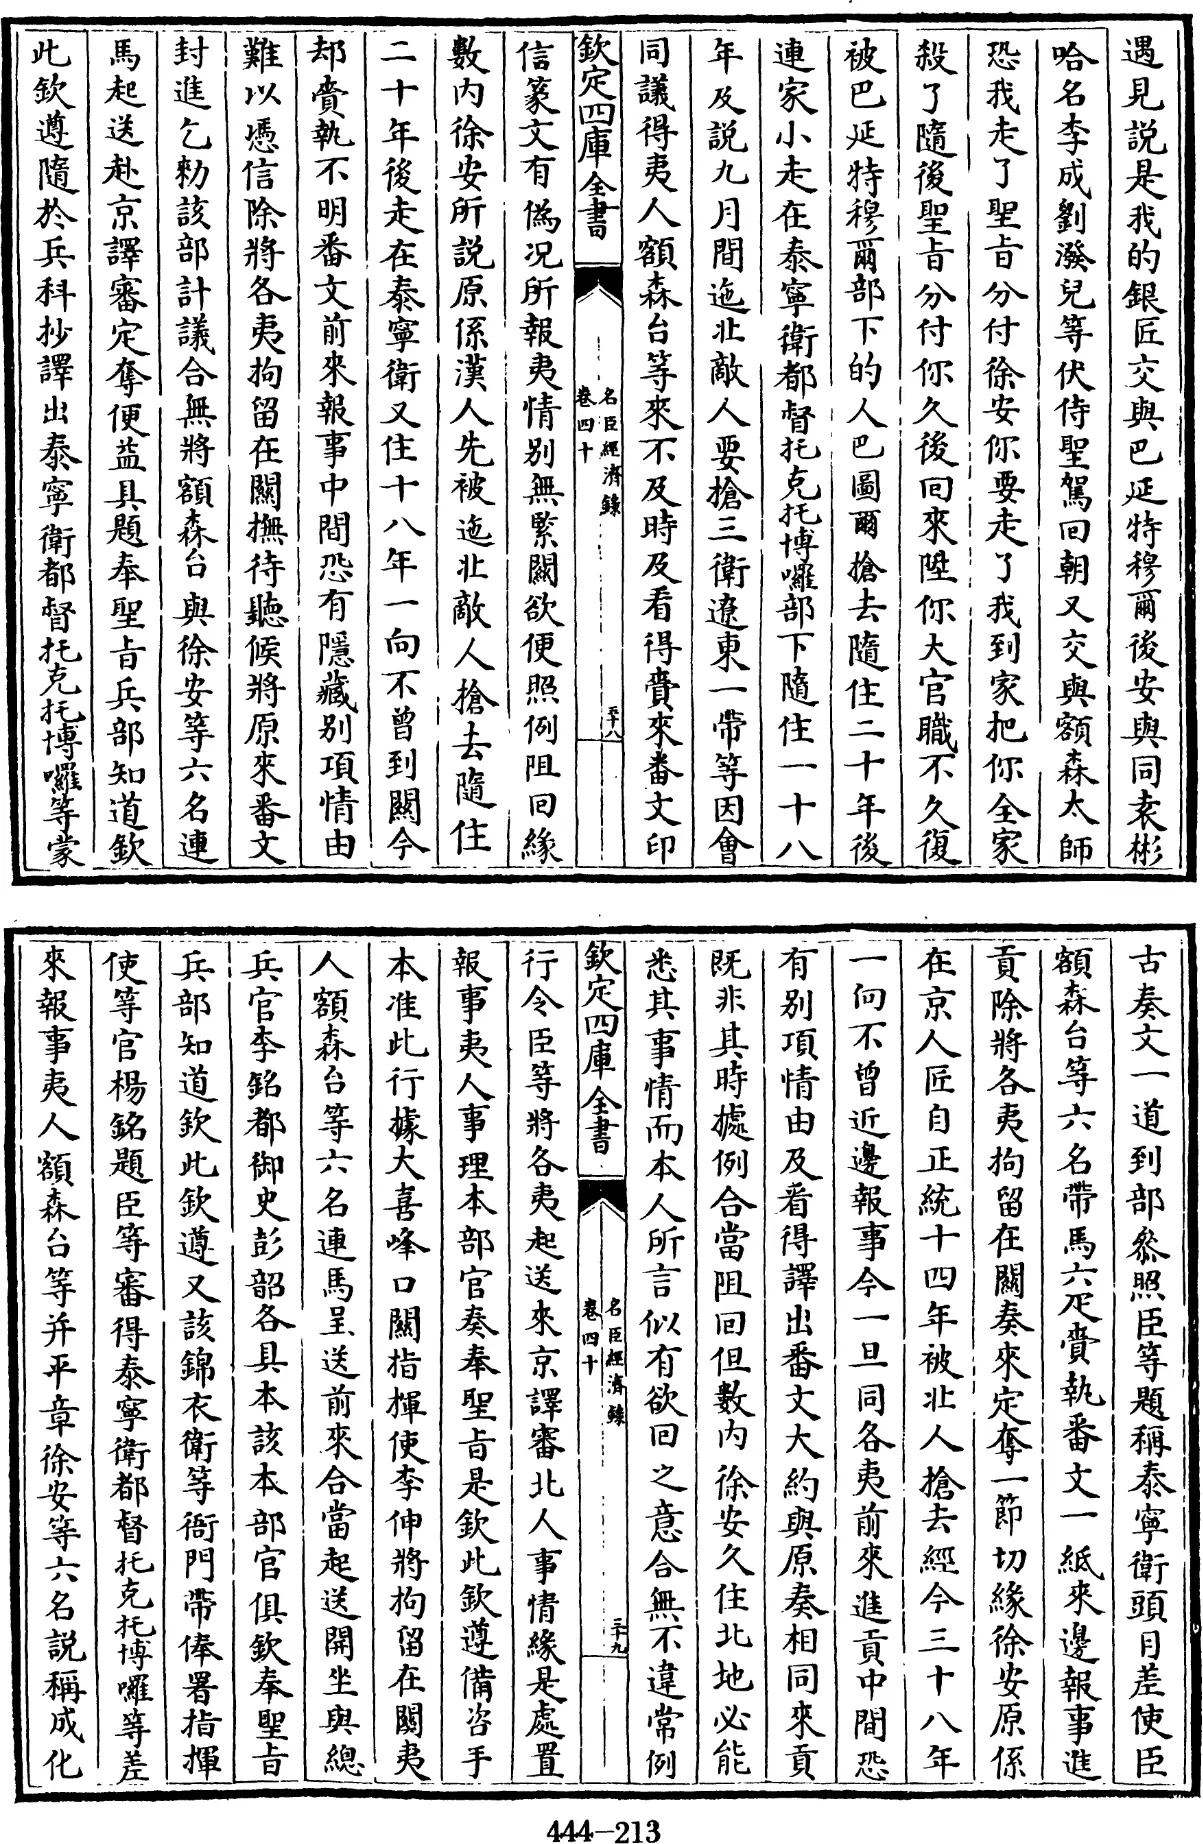 遇見説是我的銀匠交與巴延特穆爾後安與同袁彬
哈名李成劉潑兒等伏侍聖駕回朝又交與額森太師
恐我走了聖旨分付徐安你要走了我到家把你全家
殺了隨後聖旨分付你久後回來陞你大官職不久復
被巴延特穆爾部下的人巴圖爾搶去隨住二十年後
連家小走在泰寧衛都督托克托博囉部下隨住一十八
年及説九月間迤北敵人要搶三衛遼東一帶等因會
同議得夷人額森台等來不及時及看得賫來番文印
欽定四庫全書
名臣經濟錄
卷四十
三十八
信篆文有僞况所報夷情别無緊關欲便照例阻回緣
數内徐安所説原係漢人先被迤北敵人搶去隨住
二十年後走在泰寧衛又住十八年一向不曾到關今
却賫執不明番文前來報事中間恐有隱藏别項情由
難以憑信除將各夷拘留在關撫待聽候將原來番文
封進乞勑該部計議合無將額森台與徐安等六名連
馬起送赴京譯審定奪便益具題奉聖旨兵部知道欽
此欽遵隨於兵科抄譯出泰寧衛都督托克托博囉等蒙
古奏文一道到部叅照臣等題稱泰寧衛頭目差使臣
額森台等六名帶馬六疋賫執番文一紙來邊報事進
貢除將各夷拘留在關奏來定奪一節切緣徐安原係
在京人匠自正統十四年被北人搶去經今三十八年
一向不曾近邊報事今一旦同各夷前來進貢中間恐
有别項情由及看得譯出番文大約與原奏相同來貢
既非其時據例合當阻回但數内徐安久住北地必能
悉其事情而本人所言似有欲回之意合無不違常例
欽定四庫全書
名臣經濟錄
卷四十
三十九
行令臣等將各夷起送來京譯審北人事情緣是處置
報事夷人事理本部官奏奉聖旨是欽此欽遵備咨手
本准此行據大喜峰口關指揮使李伸將拘留在關夷
人額森台等六名連馬呈送前來合當起送開坐與總
兵官李銘都御史彭韶各具本該本部官俱欽奉聖旨
兵部知道欽此欽遵又該錦衣衛等衙門帶俸署指揮
使等官楊銘題臣等審得泰寧衛都督托克托博囉等差
來報事夷人額森台等并平章徐安等六名説稱成化
444—213